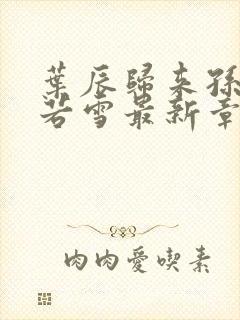 葉辰歸來孫
若雪最新章
肉肉愛喫素